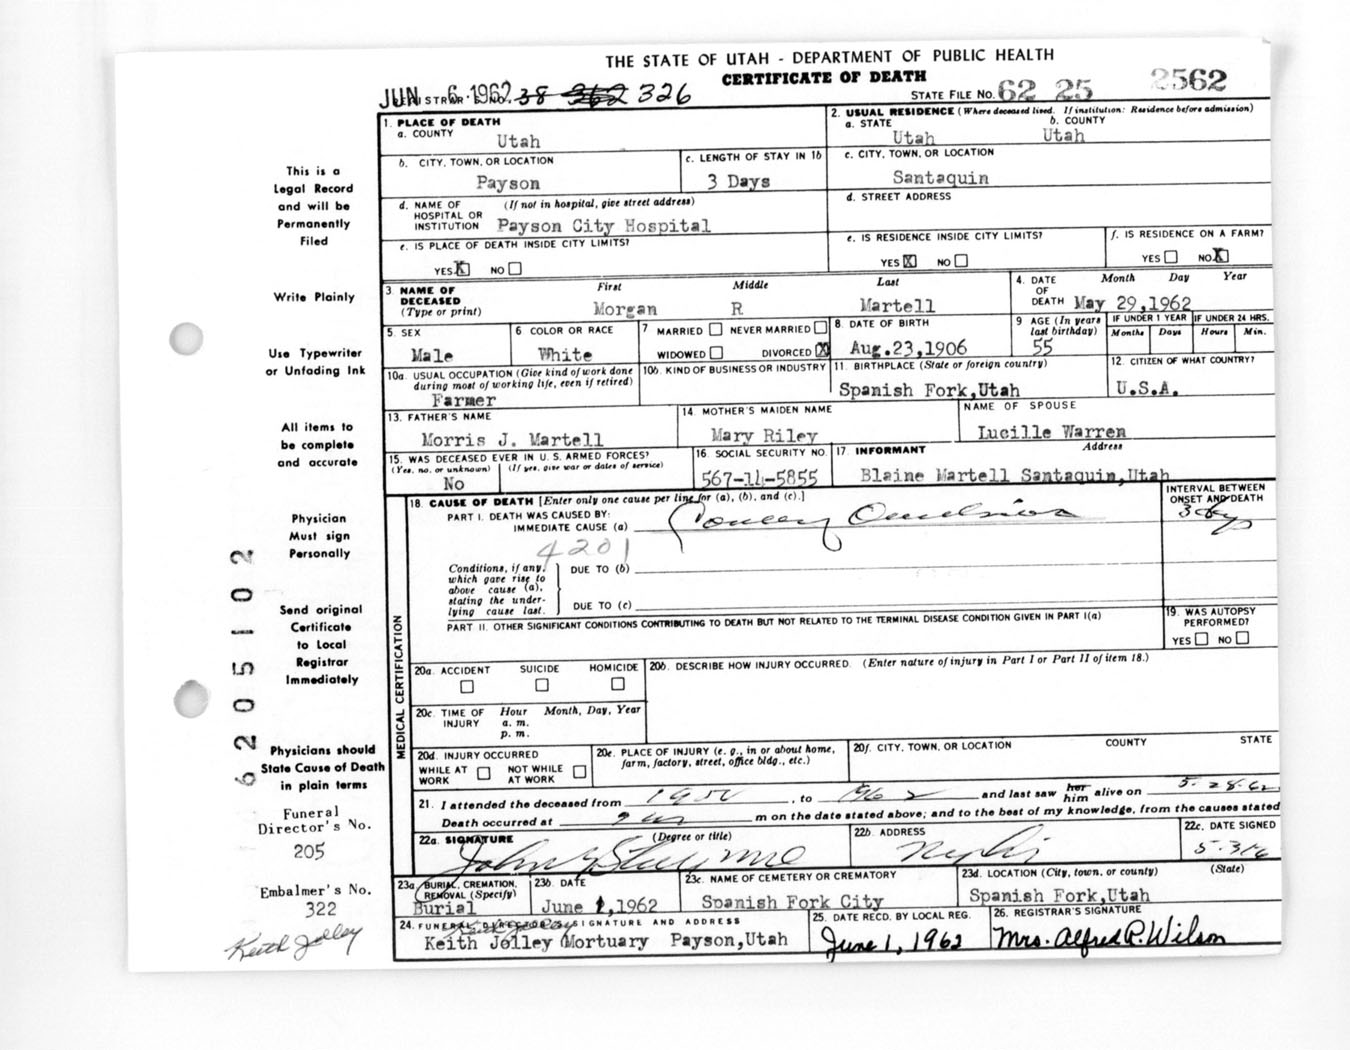 THE STATE OF UTAH - DEPARTMENT OF PUBLIC HEALTH
CERTIFICATE OF DEATH
JUN 6 1962 38 362 326
STATE FILE NO. 62 25 2562
1. PLACE OF DEATH
a. COUNTY
Utah
2. USUAL RESIDENCE (Where deceased lived. If institution: Residence before admission)
a. STATE b. COUNTY
Utah Utah
b. CITY, TOWN, OR LOCATION
Payson
c. LENGTH OF STAY IN 1b
3 Days
c. CITY, TOWN, OR LOCATION
Santaquin
d. NAME OF (If not in hospital, give street address)
HOSPITAL OR
INSTITUTION Payson City Hospital
d. STREET ADDRESS
e. IS PLACE OF DEATH INSIDE CITY LIMITS?
YES X NO
e. IS RESIDENCE INSIDE CITY LIMITS?
YES X NO
f. IS RESIDENCE ON A FARM?
YES NO X
3. NAME OF DECEASED (Type or print)
First Middle Last
Morgan R Martell
4. DATE OF DEATH
Month Day Year
May 29,1962
5. SEX
Male
6 COLOR OR RACE
White
7 MARRIED NEVER MARRIED
WIDOWED DIVORCED X
8. DATE OF BIRTH
Aug.23,1906
9 AGE (In years last birthday)
55
IF UNDER 1 YEAR
Months Days
IF UNDER 24 HRS.
Hours Min.
10a. USUAL OCCUPATION (Give kind of work done
during most of working life, even if retired)
Farmer
10b. KIND OF BUSINESS OR INDUSTRY
11. BIRTHPLACE (State or foreign country)
Spanish Fork,Utah
12. CITIZEN OF WHAT COUNTRY?
U.S.A.
13. FATHER'S NAME
Morris J. Martell
14. MOTHER'S MAIDEN NAME
Mary Riley
NAME OF SPOUSE
Lucille Warren
15. WAS DECEASED EVER IN U. S. ARMED FORCES?
(Yes, no, or unknown) (If yes, give war or dates of service)
No
16. SOCIAL SECURITY NO.
567-14-5855
17. INFORMANT Address
Blaine Martell Santaquin,Utah
MEDICAL CERTIFICATION
18. CAUSE OF DEATH [Enter only one cause per line for (a), (b), and (c).]
PART I. DEATH WAS CAUSED BY:
IMMEDIATE CAUSE (a)
4201
INTERVAL BETWEEN
ONSET AND DEATH
3 days
Conditions, if any,
which gave rise to
above cause (a),
stating the under-
lying cause last.
DUE TO (b)
DUE TO (c)
PART II. OTHER SIGNIFICANT CONDITIONS CONTRIBUTING TO DEATH BUT NOT RELATED TO THE TERMINAL DISEASE CONDITION GIVEN IN PART I(a)
19. WAS AUTOPSY
PERFORMED?
YES NO
20a. ACCIDENT SUICIDE HOMICIDE
20b. DESCRIBE HOW INJURY OCCURRED. (Enter nature of injury in Part I or Part II of item 18.)
20c. TIME OF INJURY
Hour Month, Day, Year
a. m.
p. m.
20d. INJURY OCCURRED
WHILE AT WORK NOT WHILE AT WORK
20e. PLACE OF INJURY (e. g., in or about home,
farm, factory, street, office bldg., etc.)
20f. CITY, TOWN, OR LOCATION COUNTY STATE
21. I attended the deceased from , to 1962 and last saw her him alive on 5-28-62
Death occurred at m on the date stated above; and to the best of my knowledge, from the causes stated
22a. SIGNATURE (Degree or title)
22b. ADDRESS
22c. DATE SIGNED
23a. BURIAL, CREMATION,
REMOVAL (Specify)
Burial
23b. DATE
June 1,1962
23c. NAME OF CEMETERY OR CREMATORY
Spanish Fork City
23d. LOCATION (City, town, or county) (State)
Spanish Fork,Utah
24. FUNERAL DIRECTOR'S SIGNATURE AND ADDRESS
Keith Jolley
Keith Jolley Mortuary Payson,Utah
25. DATE RECD. BY LOCAL REG.
June 1, 1962
26. REGISTRAR'S SIGNATURE
Mrs. Alfred R. Wilson
This is a
Legal Record
and will be
Permanently
Filed
Write Plainly
Use Typewriter
or Unfading Ink
All items to
be complete
and accurate
Physician
Must sign
Personally
Send original
Certificate
to Local
Registrar
Immediately
Physicians should
State Cause of Death
in plain terms
Funeral
Director's No.
205
Embalmer's No.
322
Keith Jolley
62 05102